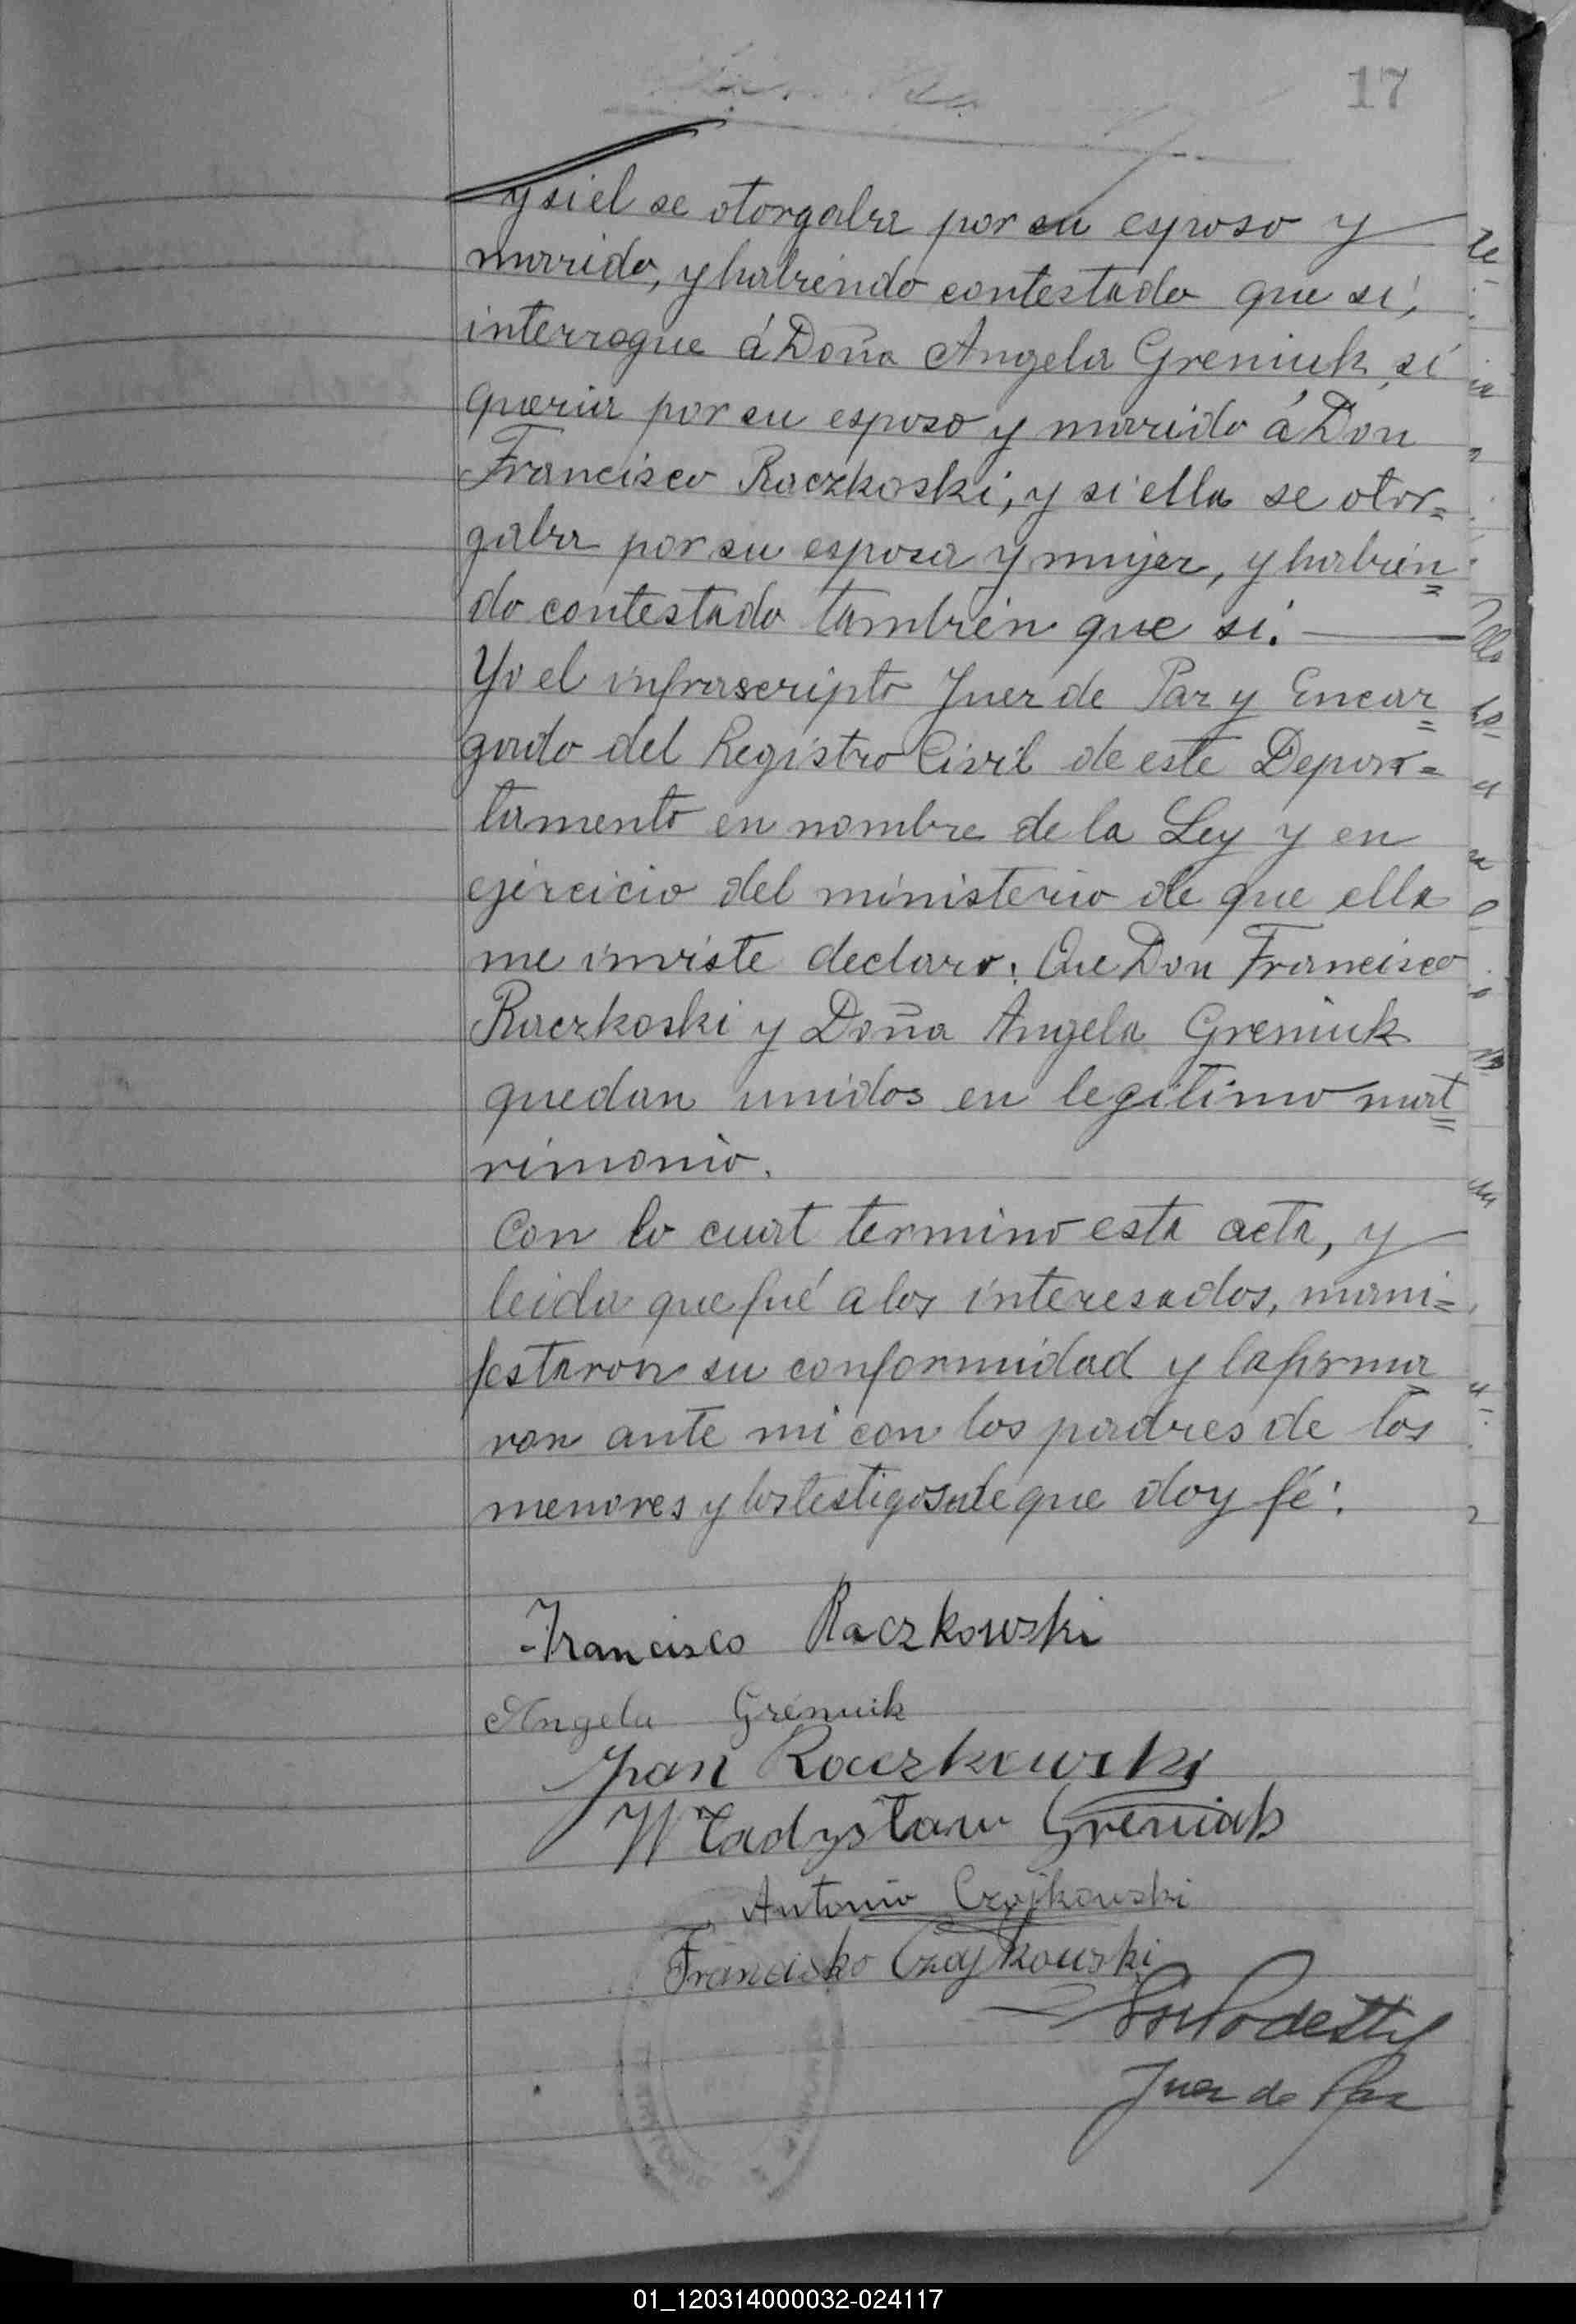 17
y si el se otorgaba por su esposo y
marido, y habiendo contestado que si,
interrogue á Doña Angela Greniuk si
queria por su esposo y marido á Don
Francisco Raczkoski, y si ella se otor=
gaba por su esposa y mujer, y habien=
do contestado tambien que si.
Yo el infrascripto Juez de Paz y Encar=
gado del Registro Civil de este Depar=
tamento en nombre de la Ley y en
ejercicio del ministerio de que ella
me inviste declaro: Que Don Francisco
Raczkoski y Doña Angela Greniuk
quedan unidos en legitimo mat=
rimonio.
Con lo cual termino esta acta, y
leida que fué a los interesados, mani=
festaron su conformidad y la firma
ron ante mi con los padres de los
menores y los testigos de que doy fé:
Francisco Raczkowski
Angela Greniuk
Jan Raczkowski
Władysław Greniuk
Antonio Czajkowski
Francisko Czajkowski
Juez de Paz
01_120314000032-024117